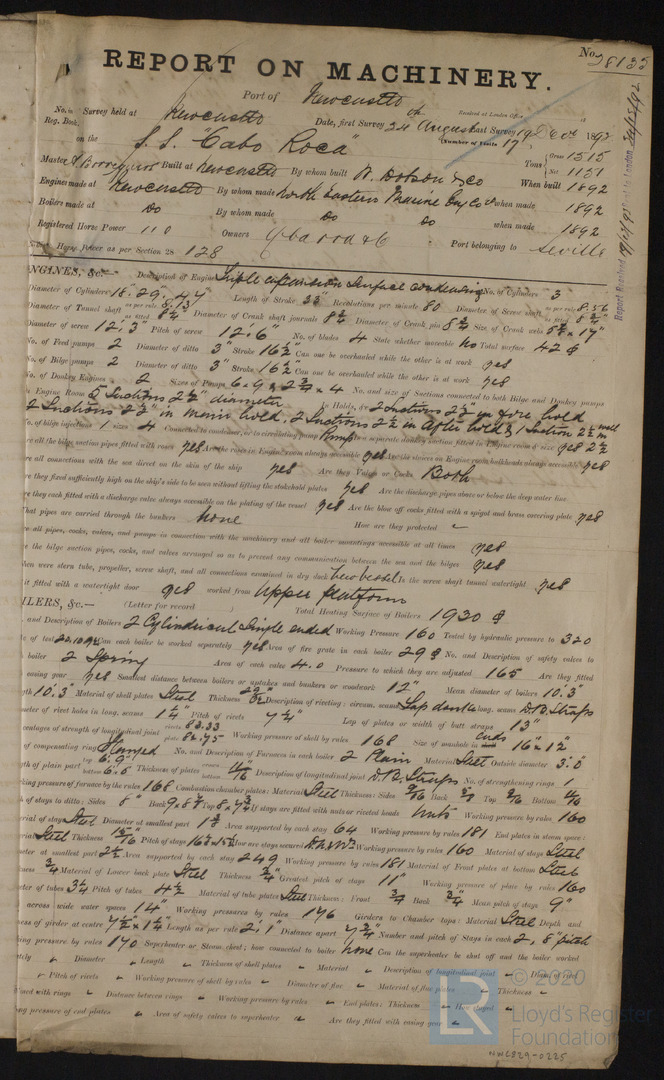 No. 28135
REPORT ON MACHINERY.
Port of Newcastle
Received at London Office
No. in Reg. Book. Survey held at Newcastle Date, first Survey 24th August Last Survey 19th Oct 1892
(Number of Visits 17
on the S.S. "Cabo Roca" Tons Gross 1515 Net 1151
Master Built at Newcastle By whom built W. Dobson & Co When built 1892
Engines made at Newcastle By whom made North Eastern Marine Eng Co when made 1892
Boilers made at Do By whom made Do Do when made 1892
Registered Horse Power 110 Owners Ybarra & Co Port belonging to Seville
Horse Power as per Section 28 128
ENGINES, &c.— Description of Engine Triple expansion Surface condensing No. of Cylinders 3
Diameter of Cylinders 18". 29". 47" Length of Stroke 33 Revolutions per minute 80 Diameter of Screw shaft as per rule 8.56
Diameter of Tunnel shaft as per rule 8.13 as fitted 8¼" Diameter of Crank shaft journals 8¾ Diameter of Crank pin 8¾ Size of Crank webs 5⅞ x 17"
Diameter of screw 12'.3" Pitch of screw 12'.6" No. of blades 4 State whether moveable No Total surface 42 ф
No. of Feed pumps 2 Diameter of ditto 3" Stroke 16½" Can one be overhauled while the other is at work yes
No. of Bilge pumps 2 Diameter of ditto 3" Stroke 16½" Can one be overhauled while the other is at work yes
No. of Donkey Engines 2 Sizes of Pumps 6 x 9 x 2¾ x 4 No. and size of Suctions connected to both Bilge and Donkey pumps
In Engine Room 5 Suctions 2½" diameter In Holds, &c. 2 Suctions 2½" in fore hold
2 Suctions 2½" in main hold, 2 Suctions 2½ in After hold & 1 Suction 2½" in well
No. of bilge injections 1 sizes 4 Connected to condenser, or to circulating pump Pump Is a separate donkey suction fitted in Engine room & size yes 2½
all the bilge suction pipes fitted with roses yes Are the roses in Engine room always accessible yes Are the sluices on Engine room bulkheads always accessible yes
all connections with the sea direct on the skin of the ship yes Are they Valves or Cocks Both
they fixed sufficiently high on the ship's side to be seen without lifting the stokehold plates yes Are the discharge pipes above or below the deep water line
they each fitted with a discharge valve always accessible on the plating of the vessel yes Are the blow off cocks fitted with a spigot and brass covering plate yes
What pipes are carried through the bunkers none How are they protected
all pipes, cocks, valves, and pumps in connection with the machinery and all boiler mountings accessible at all times yes
the bilge suction pipes, cocks, and valves arranged so as to prevent any communication between the sea and the bilges yes
When were stern tube, propeller, screw shaft, and all connections examined in dry dock New vessel Is the screw shaft tunnel watertight yes
it fitted with a watertight door yes worked from Upper platform
BOILERS, &c.— (Letter for record ) Total Heating Surface of Boilers 1930 ф
and Description of Boilers 2 Cylindrical Single ended Working Pressure 160 Tested by hydraulic pressure to 320
of test Can each boiler be worked separately yes Area of fire grate in each boiler 29 ф No. and Description of safety valves to
boiler 2 Spring Area of each valve 4.0 Pressure to which they are adjusted 165 Are they fitted
easing gear yes Smallest distance between boilers or uptakes and bunkers or woodwork 12" Mean diameter of boilers 10'.3"
10'.3" Material of shell plates Steel Thickness Description of riveting: circum. seams Lap double long. seams D.R. Straps
diameter of rivet holes in long. seams 1¼" Pitch of rivets 7¼" Lap of plates or width of butt straps 13"
percentages of strength of longitudinal joint rivets 83.33 plate 82.75 Working pressure of shell by rules 168 Size of manhole in ends 16" x 12"
of compensating ring Flanged No. and Description of Furnaces in each boiler 2 Plain Material Steel Outside diameter 3'.0"
of plain part top 6'.9" bottom 6'.6 Thickness of plates crown bottom 11/16" Description of longitudinal joint D.R. Straps No. of strengthening rings 1
working pressure of furnace by the rules 168 Combustion chamber plates: Material Steel Thickness: Sides 9/16 Back Top 9/16 Bottom 11/16
of stays to ditto: Sides 8" Back Top If stays are fitted with nuts or riveted heads Nuts Working pressure by rules 160
of stays Steel Diameter at smallest part Area supported by each stay 64 Working pressure by rules 181 End plates in steam space:
Steel Thickness 15/16" Pitch of stays How are stays secured Working pressure by rules 160 Material of stays Steel
at smallest part 2½ Area supported by each stay 249 Working pressure by rules 181 Material of Front plates at bottom Steel
¾ Material of Lower back plate Steel Thickness ¾" Greatest pitch of stays 11" Working pressure of plate by rules 160
of tubes 3¼ Pitch of tubes 4½ Material of tube plates Steel Thickness: Front ¾ Back ¾" Mean pitch of stays 9"
across wide water spaces 14" Working pressures by rules 176 Girders to Chamber tops: Material Steel Depth and
of girder at centre 7½" x 1¼" Length as per rule 2'.1" Distance apart 7¾" Number and pitch of Stays in each 2, 8" pitch
working pressure by rules 170 Superheater or Steam chest; how connected to boiler none Can the superheater be shut off and the boiler worked
Diameter Length Thickness of shell plates Material Description of longitudinal joint Diam. of rivet
Pitch of rivets Working pressure of shell by rules Diameter of flue Material of flue plates Thickness
with rings Distance between rings Working pressure by rules End plates: Thickness How stayed
pressure of end plates Area of safety valves to superheater Are they fitted with easing gear
© 2020
Lloyd's Register
Foundation
NWC829-0225